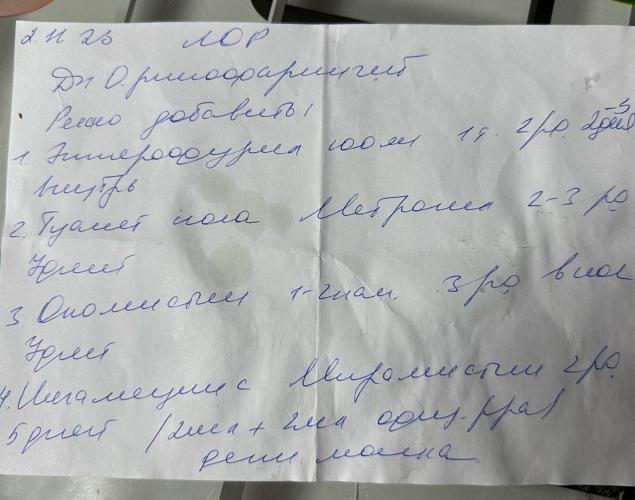 2.11 23 ЛОР
Дз О. ринофарингит
Реко добавить!
1. Энтерофурил 100мл 1т. 2/ро 2дня -3
внутрь
2. Туалет носа 2-3 ро
7дней
3. Окомистин 1-2кап. 3/ро в нос
7дней
4. Ингаляции с Мирамистин 2/ро
5дней (2мл + 2мл физ. р-ра)
маска